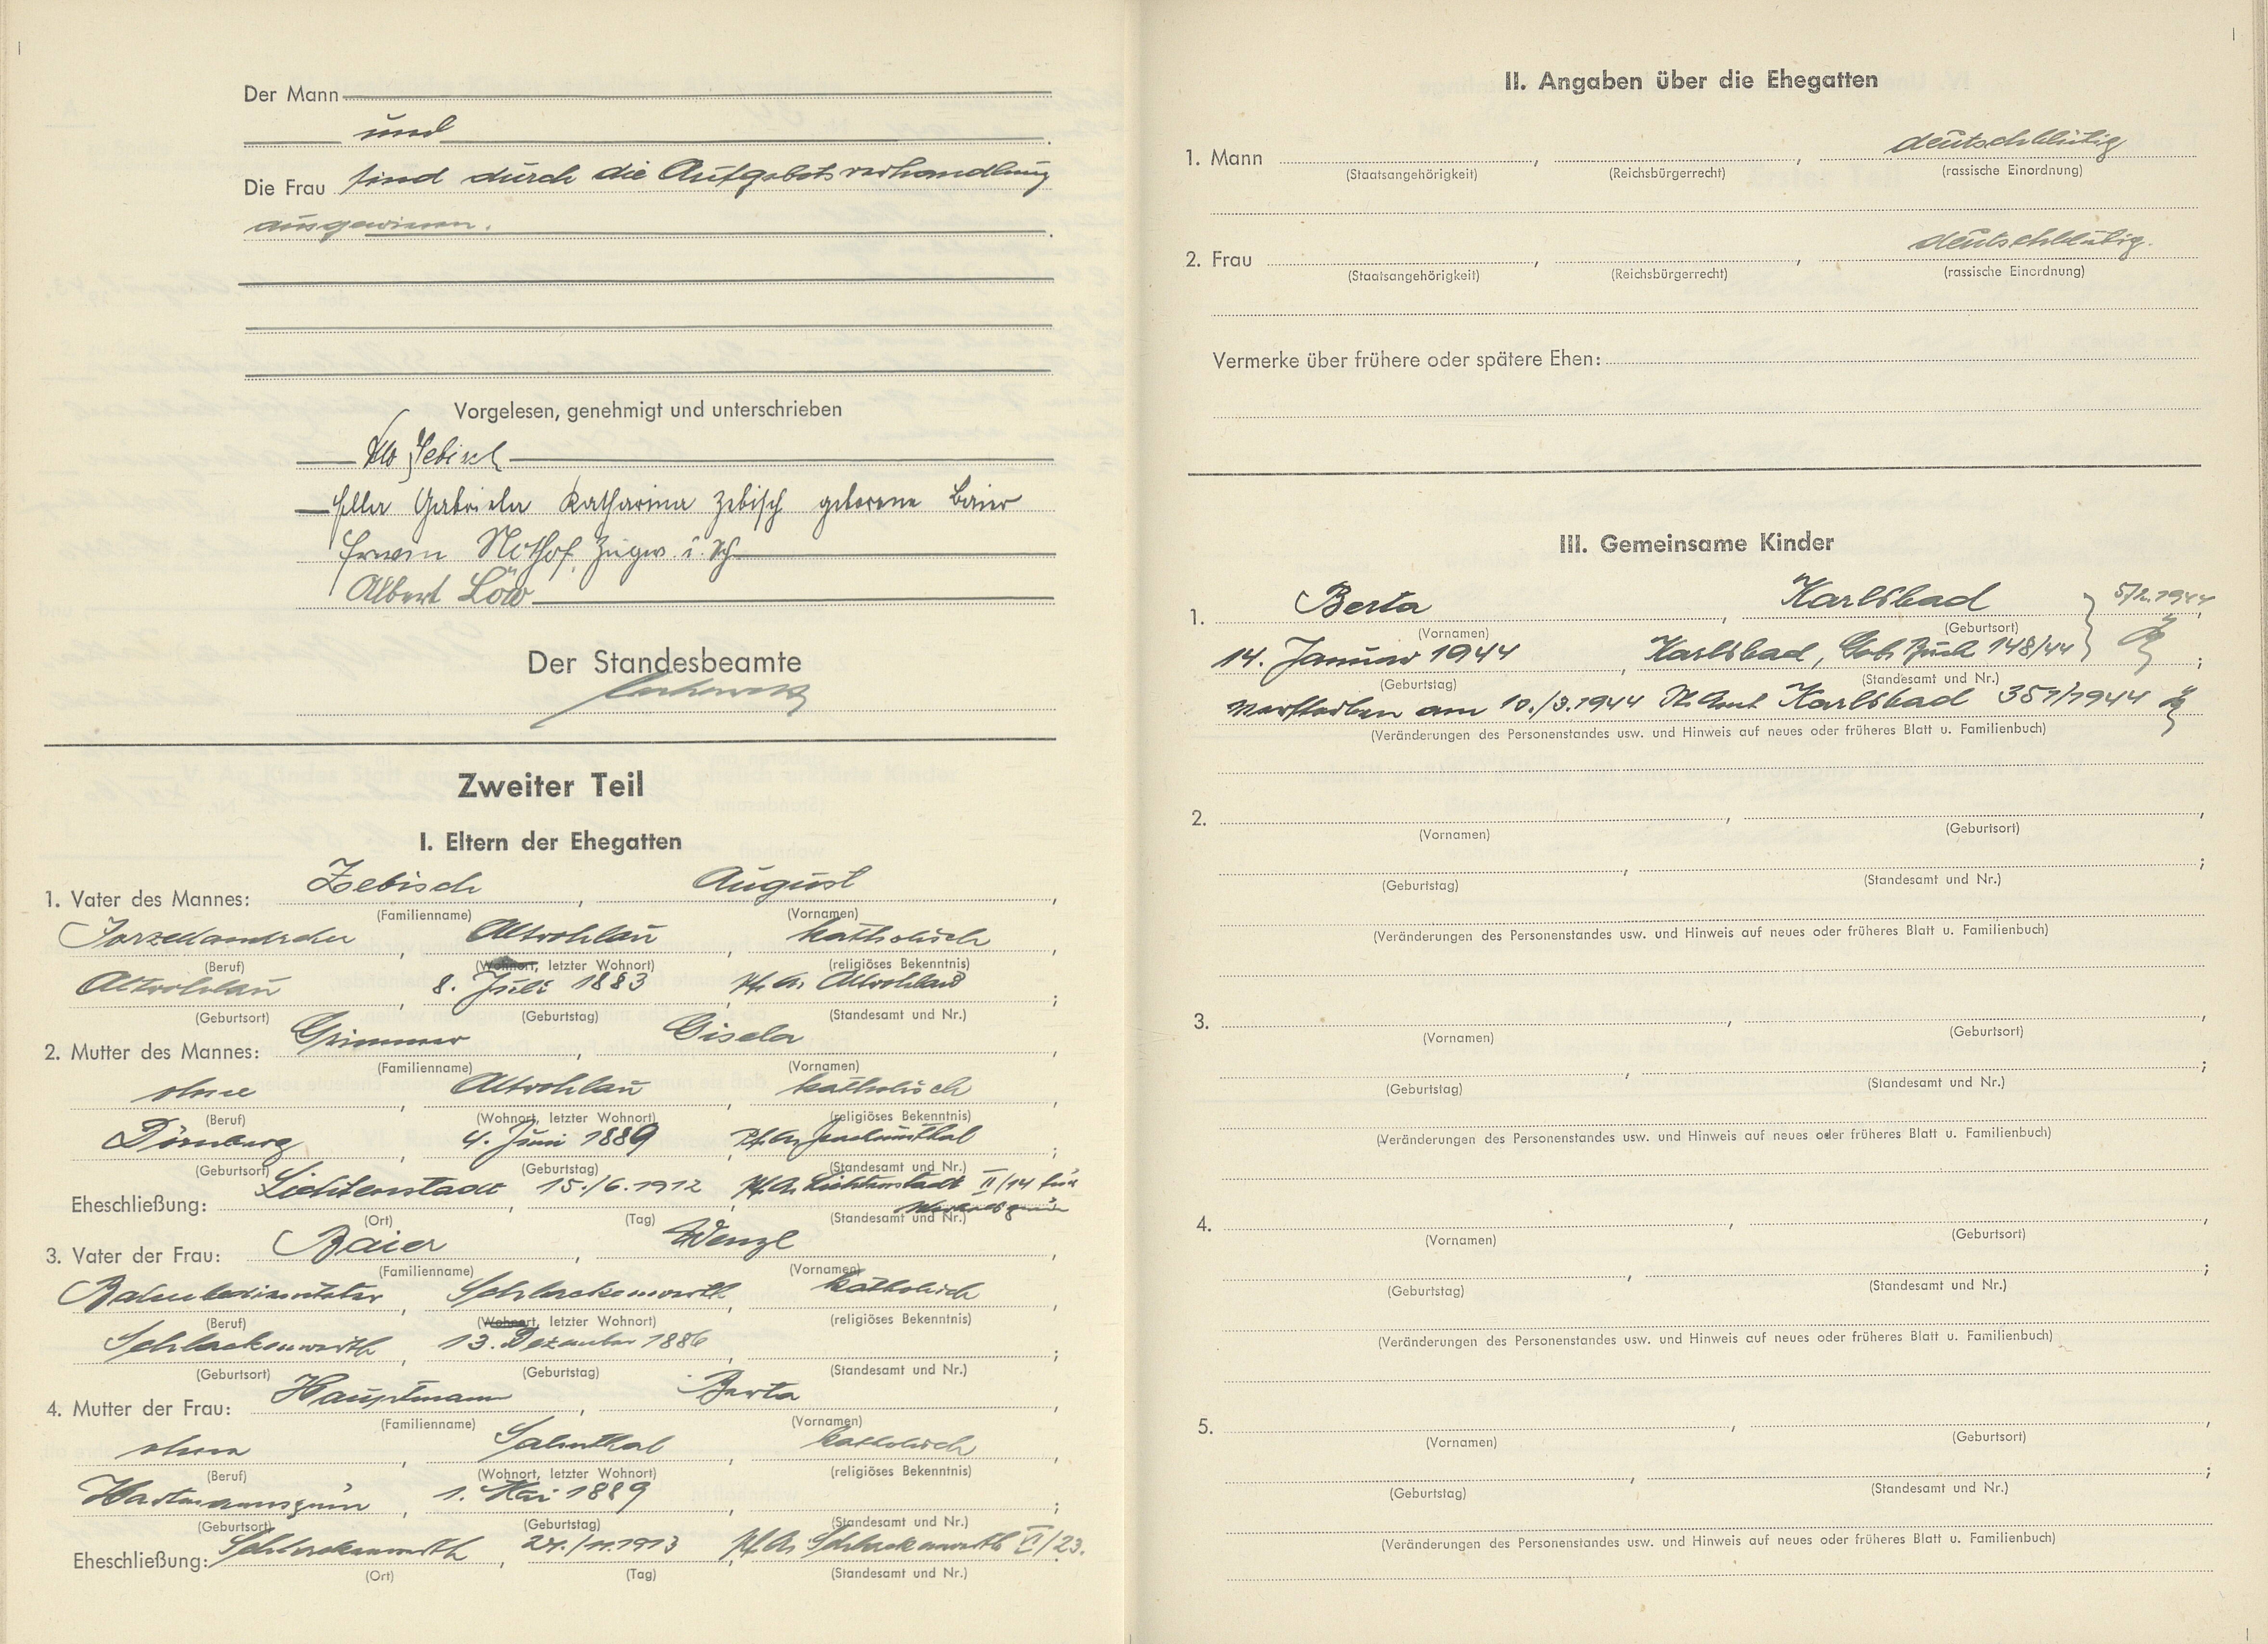 Der Mann
und
Die Frau sind durch die Aufgebotsverhandlung
ausgewiesen.
Vorgelesen, genehmigt und unterschrieben
Zebisch
Ella Gabriela Katharina Zebisch geborene Baier
Erwin Nothof, Zugw. i. Sch.
Albert Löw
Der Standesbeamte
Zweiter Teil
I. Eltern der Ehegatten
1. Vater des Mannes: Zebisch, August,
(Familienname) (Vornamen)
Porzellandreher, Altrohlau, katholisch,
(Beruf) (Wohnort, letzter Wohnort) (religiöses Bekenntnis)
Altrohlau, 8. Juli 1883, Pf. A. Altrohlau;
(Geburtsort) (Geburtstag) (Standesamt und Nr.)
2. Mutter des Mannes: Grimmer, Gisela,
(Familienname) (Vornamen)
ohne, Altrohlau, katholisch,
(Beruf) (Wohnort, letzter Wohnort) (religiöses Bekenntnis)
Dürnberg, 4. Juni 1889, Pf. A. Joachimsthal;
(Geburtsort) (Geburtstag) (Standesamt und Nr.)
Eheschließung: Lichtenstadt, 15./6.1912, Pf. A. Lichtenstadt II/14 für
(Ort) (Tag) (Standesamt und Nr.)
3. Vater der Frau: Baier, Wenzl,
(Familienname) (Vornamen)
Schlackenwerth, katholisch,
(Beruf) (Wohnort, letzter Wohnort) (religiöses Bekenntnis)
Schlackenwerth, 13. Dezember 1886,;
(Geburtsort) (Geburtstag) (Standesamt und Nr.)
4. Mutter der Frau: Hauptmann, Berta,
(Familienname) (Vornamen)
ohne, Salmthal, katholisch,
(Beruf) (Wohnort, letzter Wohnort) (religiöses Bekenntnis)
Hartmannsgrün, 1. Mai 1889,;
(Geburtsort) (Geburtstag) (Standesamt und Nr.)
Eheschließung: Schlackenwerth, 24./11.1913, Pf. A. Schlackenwerth II/23.
(Ort) (Tag) (Standesamt und Nr.)
II. Angaben über die Ehegatten
1. Mann , , deutschblütig
(Staatsangehörigkeit) (Reichsbürgerrecht) (rassische Einordnung)
2. Frau , , deutschblütig.
(Staatsangehörigkeit) (Reichsbürgerrecht) (rassische Einordnung)
Vermerke über frühere oder spätere Ehen:
III. Gemeinsame Kinder
1. Berta, Karlsbad 5/2.1944,
(Vornamen) (Geburtsort)
14. Januar 1944, Karlsbad, Geb. Buch 148/44;
(Geburtstag) (Standesamt und Nr.)
verstorben am 10./3.1944 St. Amt Karlsbad 351/1944
(Veränderungen des Personenstandes usw. und Hinweis auf neues oder früheres Blatt u. Familienbuch)
2. , ,
(Vornamen) (Geburtsort)
, ;
(Geburtstag) (Standesamt und Nr.)
(Veränderungen des Personenstandes usw. und Hinweis auf neues oder früheres Blatt u. Familienbuch)
3. , ,
(Vornamen) (Geburtsort)
, ;
(Geburtstag) (Standesamt und Nr.)
(Veränderungen des Personenstandes usw. und Hinweis auf neues oder früheres Blatt u. Familienbuch)
4. , ,
(Vornamen) (Geburtsort)
, ;
(Geburtstag) (Standesamt und Nr.)
(Veränderungen des Personenstandes usw. und Hinweis auf neues oder früheres Blatt u. Familienbuch)
5. , ,
(Vornamen) (Geburtsort)
, ;
(Geburtstag) (Standesamt und Nr.)
(Veränderungen des Personenstandes usw. und Hinweis auf neues oder früheres Blatt u. Familienbuch)